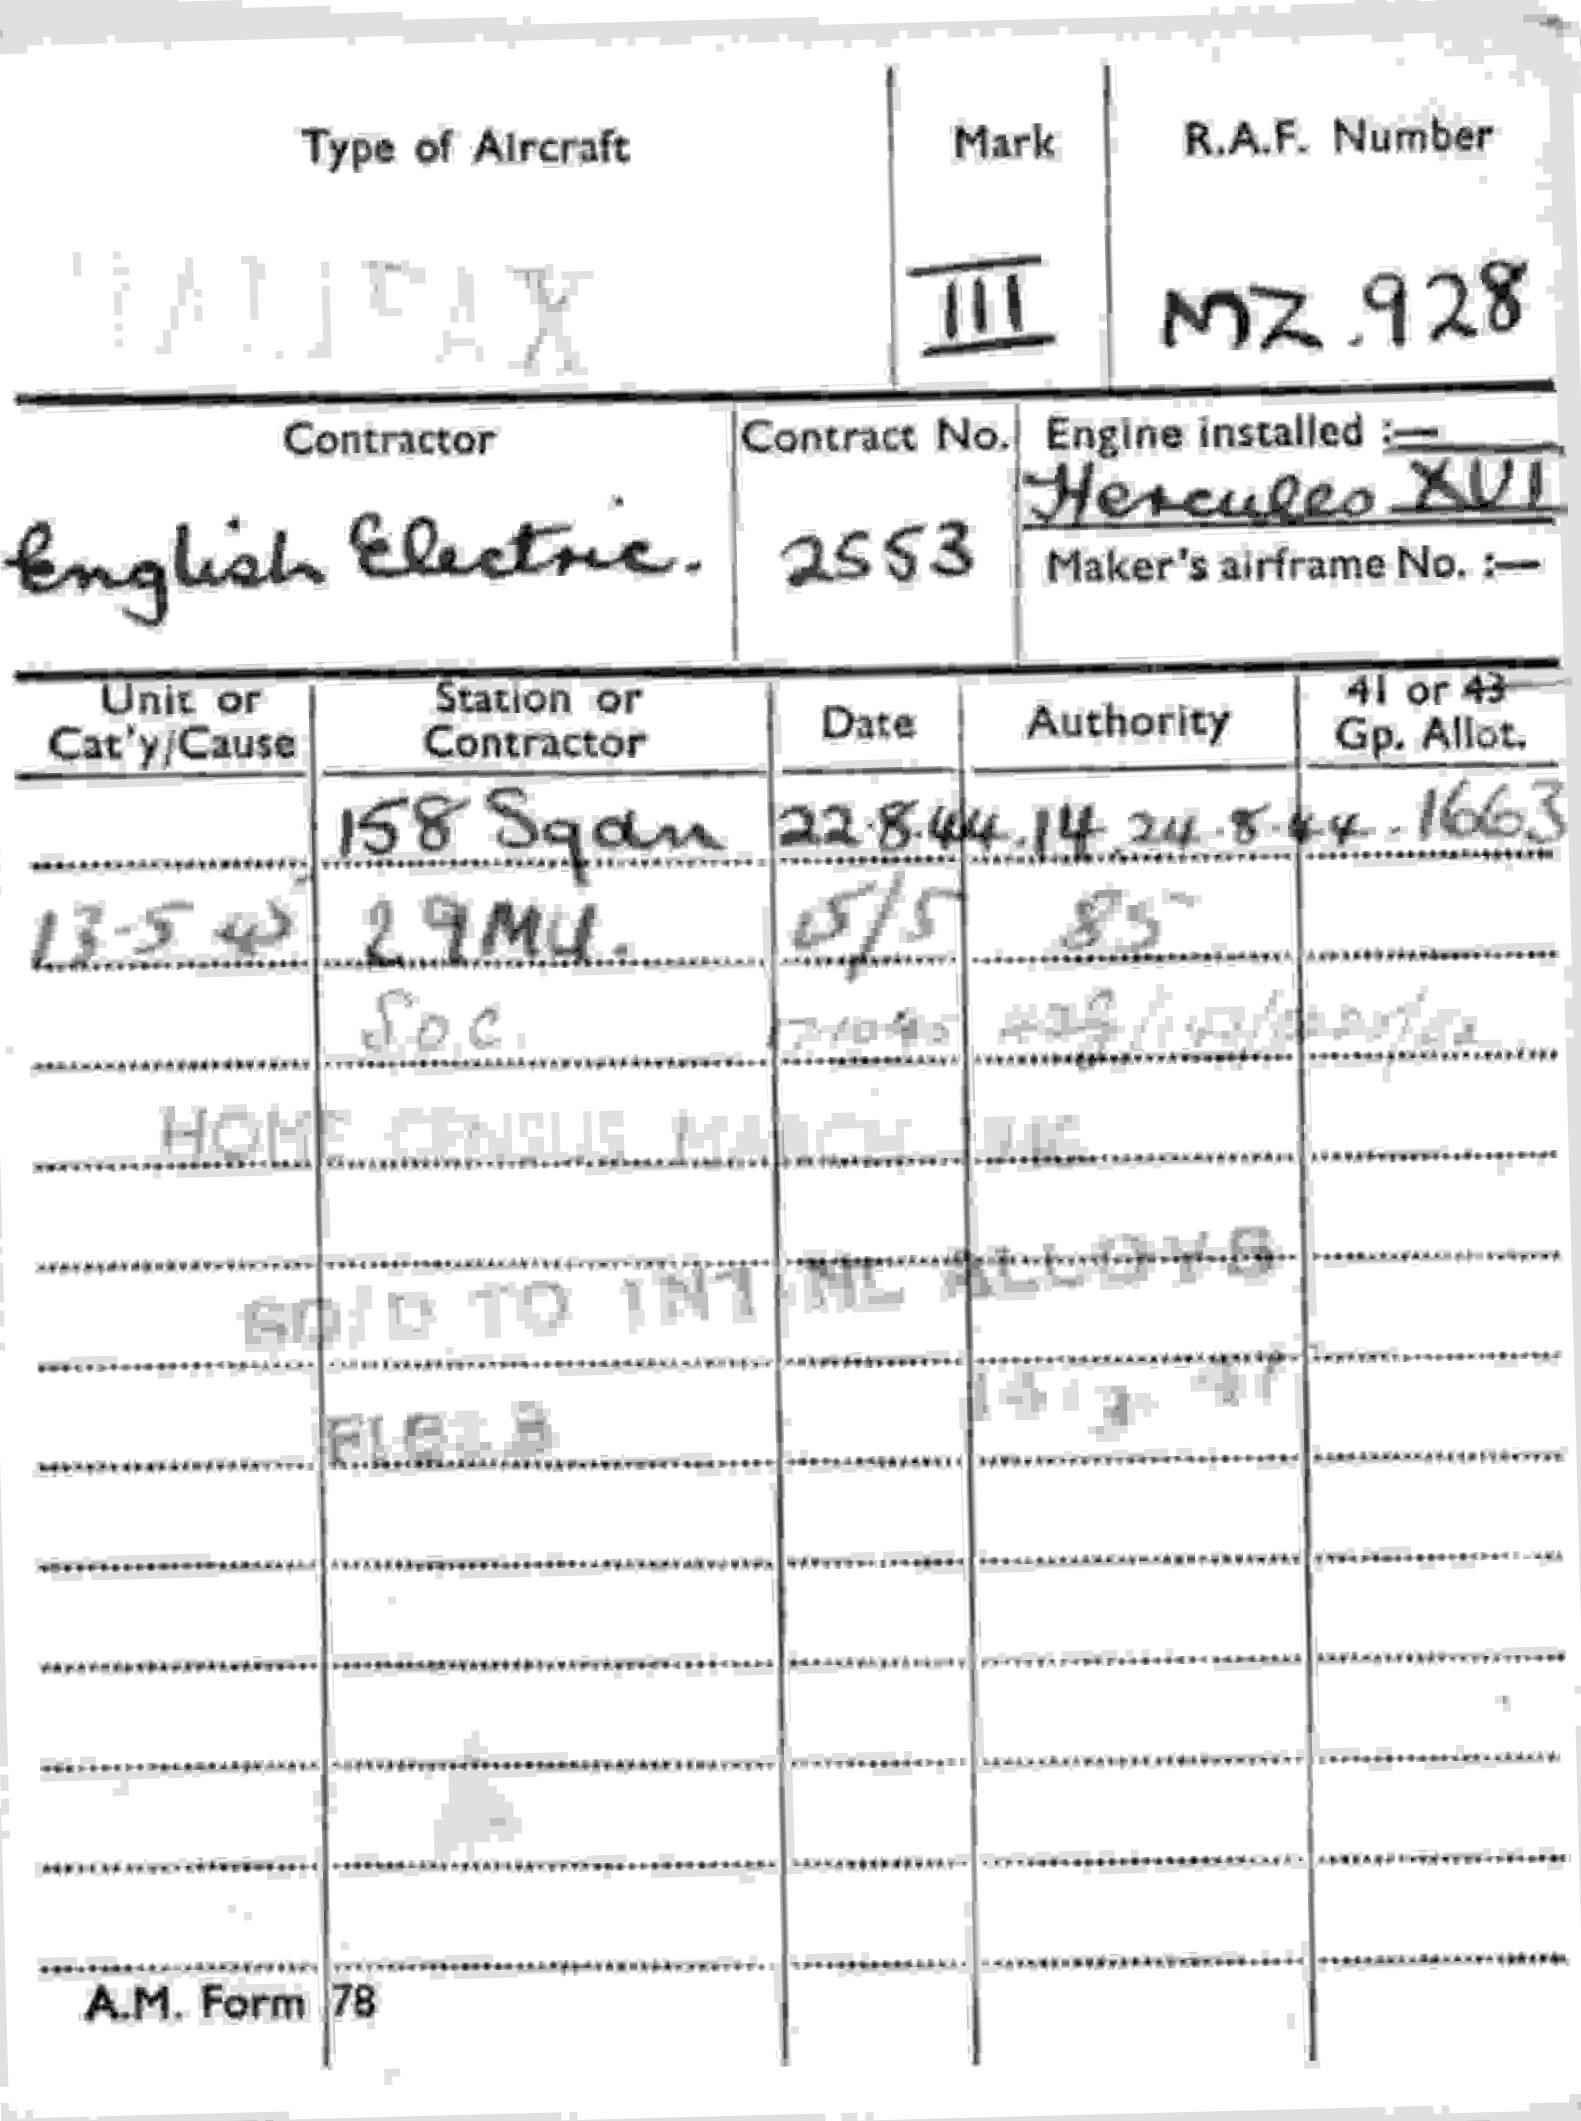 Type of Aircraft Mark R.A.F. Number
HALIFAX III MZ.928
Contractor Contract No. Engine installed :—
English Electric. 2553 Hercules XVI
Maker's airframe No. :—
Unit or Cat'y/Cause Station or Contractor Date Authority 41 or 43 Gp. Allot.
158 Sqdn 22.8.44 .14 24.8.44. 1663
13.5.45 29MU. 15/5 85
S.O.C.
HOME CENSUS MARCH 1946
SOLD TO INT ALLOYS
A.M. Form 78